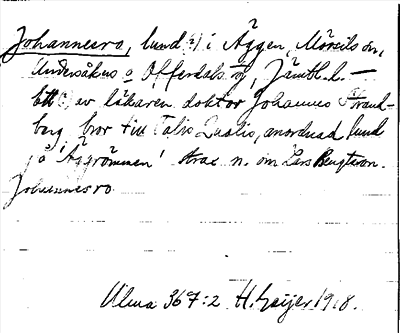 Johannesro, lund i Äggen, Mörsils sn,
Undersåkers o Offerdals tg, Jämtl. l. —
Ett av läkaren doktor Johannes Strand-
berg, bror till Talis Qualis, anordnad lund
på 'Äggrömmen' strax n. om Lars Bengtson.
Johannesro
Ulma 367:2 H. Geijer 1918.